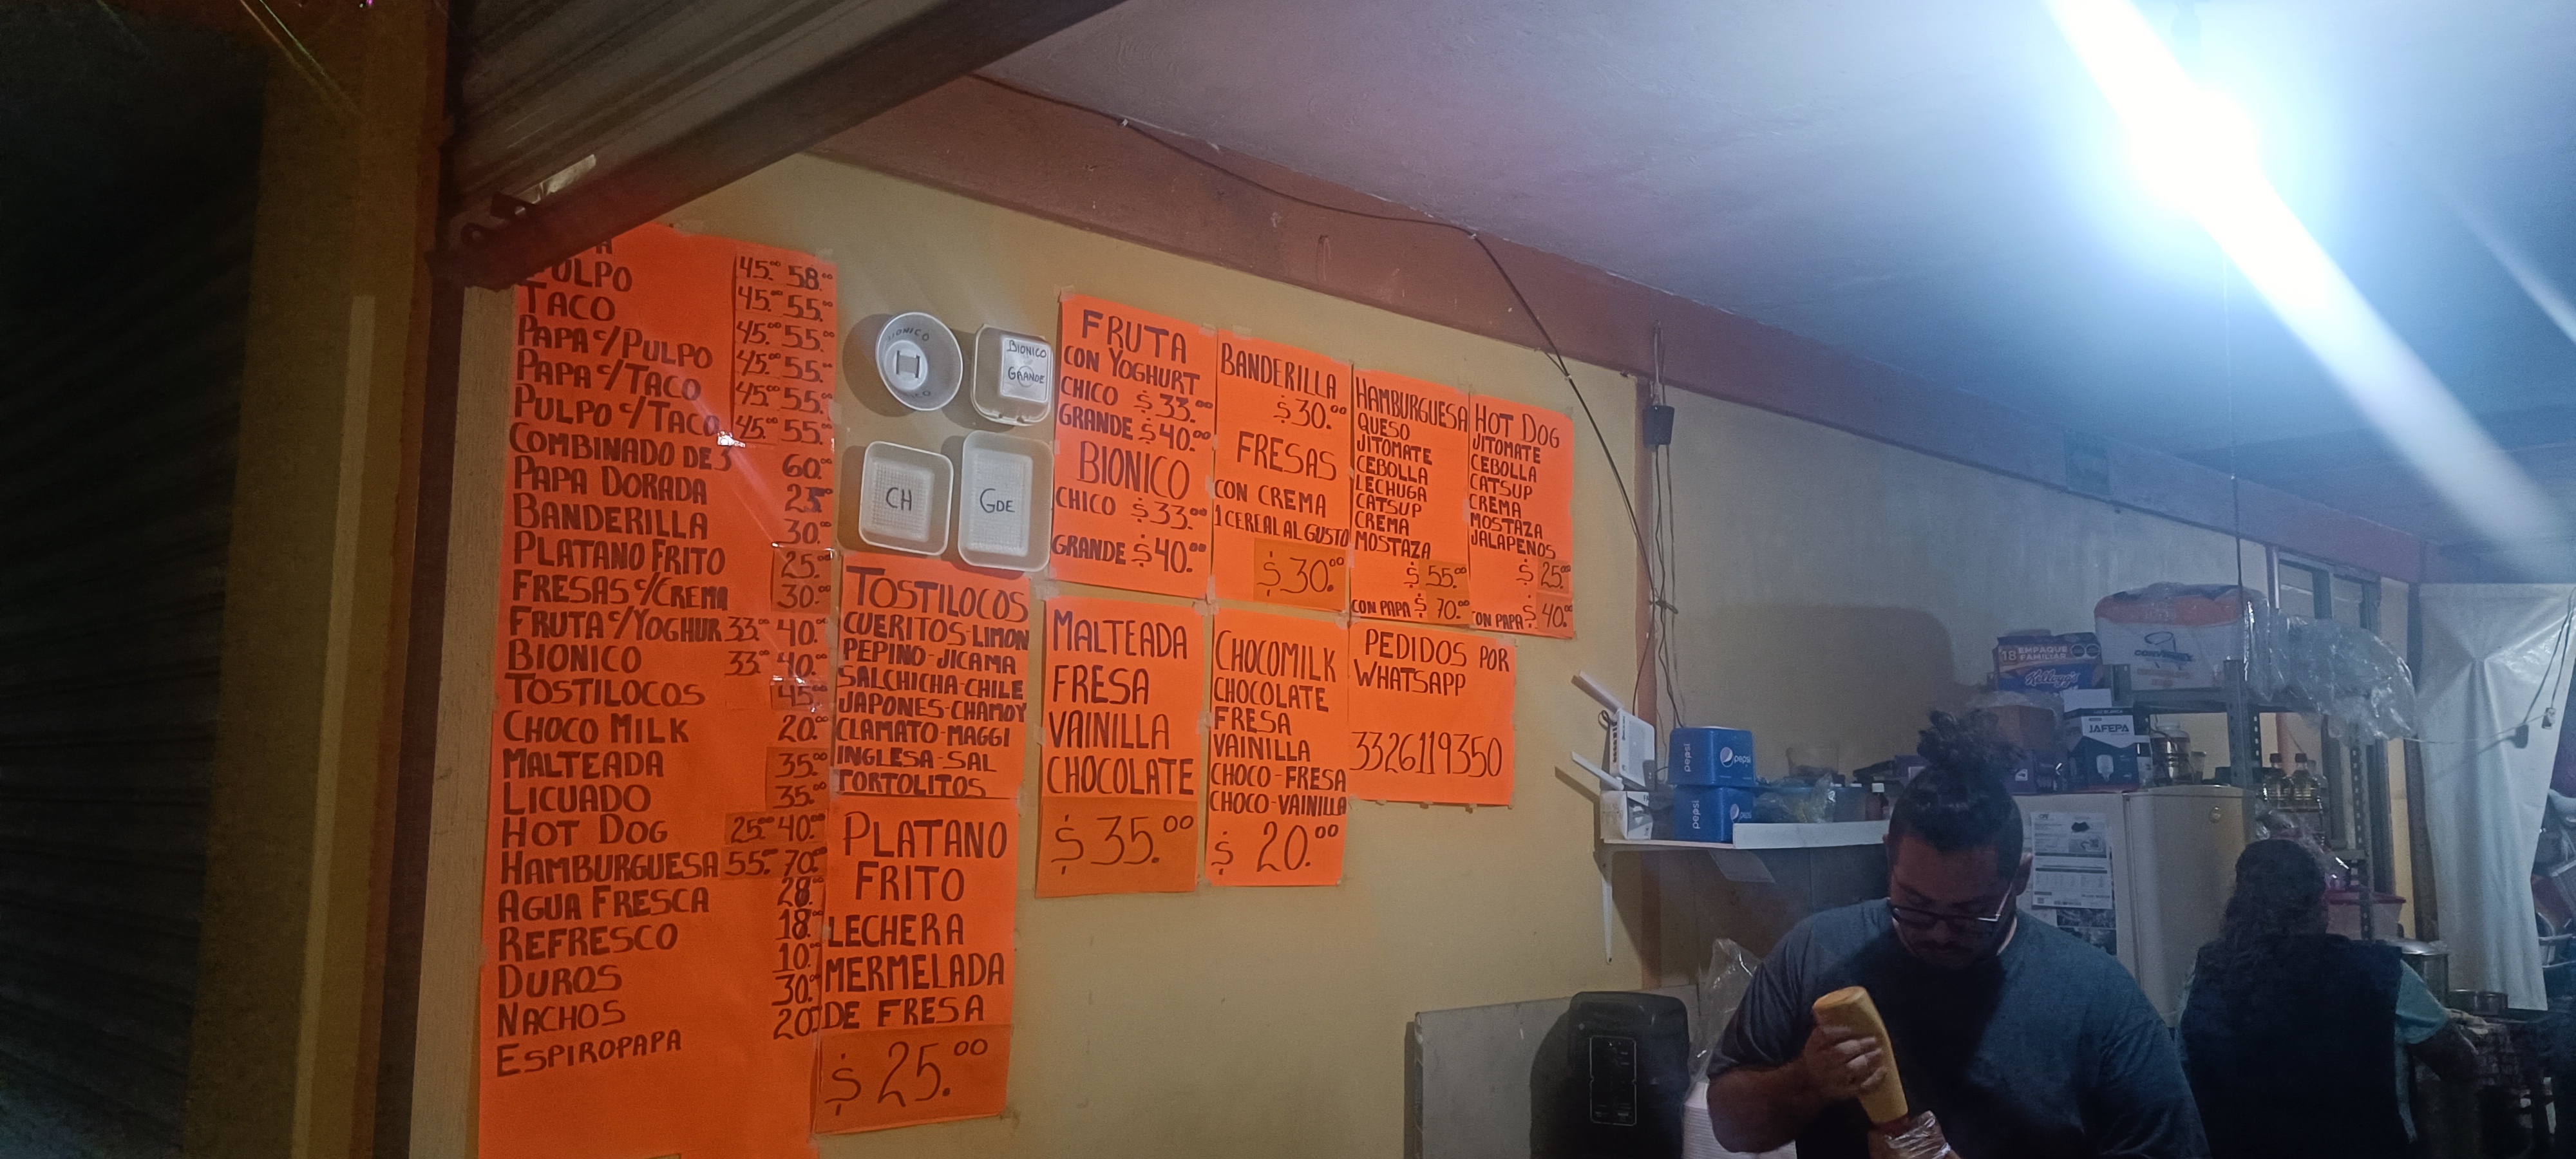 PULPO 45.00 58.00
TACO 45.00 55.00
PAPA c/PULPO 45.00 55.00
PAPA c/TACO 45.00 55.00
PULPO c/TACO 45.00 55.00
COMBINADO DE 3 45.00 55.00
PAPA DORADA 60.00
BANDERILLA 25.00
PLATANO FRITO 30.00
FRESAS c/CREMA 25.00
FRUTA c/YOGHUR 30.00
BIONICO 33.00 40.00
TOSTILOCOS 33.00 40.00
CHOCO MILK 45.00
MALTEADA 20.00
LICUADO 35.00
HOT DOG 35.00
HAMBURGUESA 25.00 40.00
AGUA FRESCA 55.00 70.00
REFRESCO 28.00
DUROS 18.00
NACHOS 10.00
ESPIROPAPA 30.00
20
BIONICO
CH
BIONICO
GRANDE
CH
GDE
TOSTILOCOS
CUERITOS-LIMON
PEPINO-JICAMA
SALCHICHA-CHILE
JAPONES-CHAMOY
CLAMATO-MAGGI
INGLESA-SAL
TORTOLITOS
PLATANO
FRITO
LECHERA
MERMELADA
DE FRESA
$25.00
FRUTA
CON YOGHURT
CHICO $33.00
GRANDE $40.00
BIONICO
CHICO $33.00
GRANDE $40.00
MALTEADA
FRESA
VAINILLA
CHOCOLATE
$35.00
BANDERILLA
$30.00
FRESAS
CON CREMA
1 CEREAL AL GUSTO
$30.00
CHOCOMILK
CHOCOLATE
FRESA
VAINILLA
CHOCO-FRESA
CHOCO-VAINILLA
$20.00
HAMBURGUESA
QUESO
JITOMATE
CEBOLLA
LECHUGA
CATSUP
CREMA
MOSTAZA
$55.00
CON PAPA $70.00
HOT DOG
JITOMATE
CEBOLLA
CATSUP
CREMA
MOSTAZA
JALAPEÑOS
$25.00
CON PAPA $40.00
PEDIDOS POR
WHATSAPP
3326119350
pepsi
pepsi
pepsi
18 EMPAQUE
FAMILIAR
Kellogg's
JAFEPA